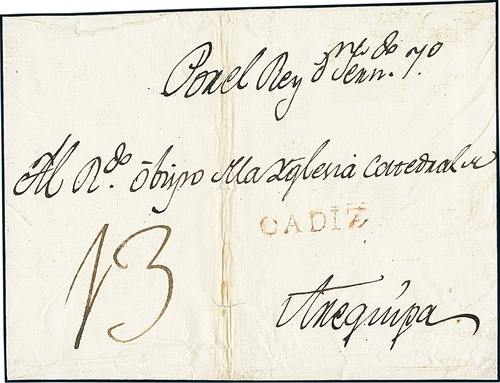 Por el Rey d. Fern. 7º
Al Rdo. Obispo de la Yglesia Catedral de
CADIZ
13
Arequipa